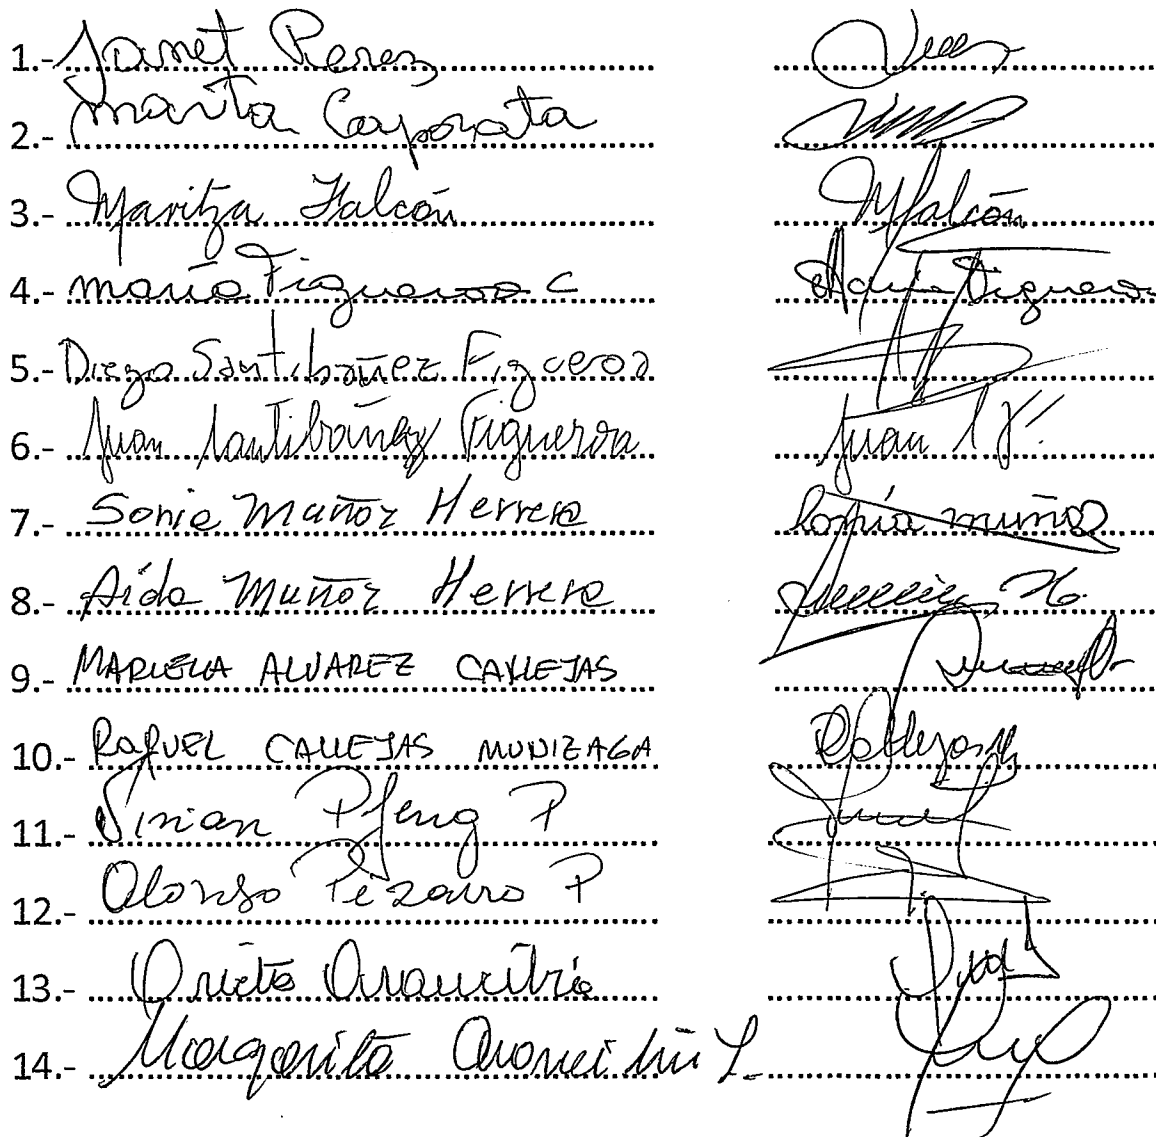 1.- Janet Perez
2.- Marita Caporata
3.- Maritza Falcón MFalcón
4.- María Figueroa C María Figueroa
5.- Diego Santibáñez Figueroa
6.- Juan Santibáñez Figueroa Juan S F.
7.- Sonia Muñoz Herrera Sonia Muñoz
8.- Aída Muñoz Herrera
9.- MARIELA ALVAREZ CALLEJAS
10.- RAQUEL CALLEJAS MUNIZAGA RCallejasM
11.- P
12.- Alonso Pizarro P
13.- Orieta Arancibia
14.- Margarita L.